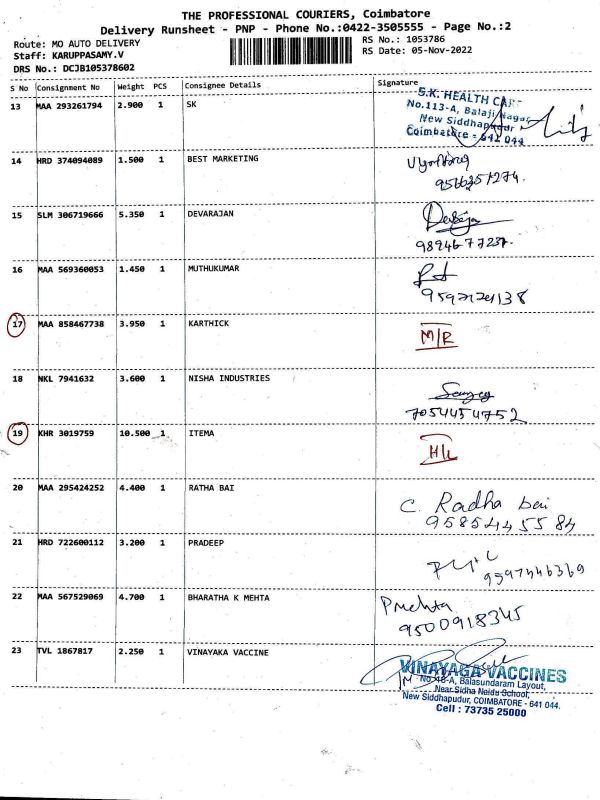 THE PROFESSIONAL COURIERS, Coimbatore
Delivery Runsheet - PNP - Phone No.:0422-3505555 - Page No.:2
Route: MO AUTO DELIVERY
RS No.: 1053786
Staff: KARUPPASAMY.V
RS Date: 05-Nov-2022
DRS No.: DCJB105378602
S No Consignment No Weight PCS Consignee Details Signature
13 MAA 293261794 2.900 1 SK
S.K. HEALTH CARE
No.113-A, Balaji Nagar
New Siddhapudur
Coimbatore - 641 044
14 HRD 374094089 1.500 1 BEST MARKETING
9566351274.
15 SLM 306719666 5.350 1 DEVARAJAN
9894677237.
16 MAA 569360053 1.450 1 MUTHUKUMAR
17 MAA 858467738 3.950 1 KARTHICK
M/R
18 NKL 7941632 3.600 1 NISHA INDUSTRIES
7054454752
19 KHR 3019759 10.500 1 ITEMA
H/L
20 MAA 295424252 4.400 1 RATHA BAI
C. Radha bai
9585445584
21 HRD 722600112 3.200 1 PRADEEP
9597546369
22 MAA 567529069 4.700 1 BHARATHA K MEHTA
Pmehta
9500918345
23 TVL 1867817 2.250 1 VINAYAKA VACCINE
VINAYAGA VACCINES
No 48-A, Balasundaram Layout,
Near Sidha Naidu School,
New Siddhapudur, COIMBATORE - 641 044.
Cell : 73735 25000